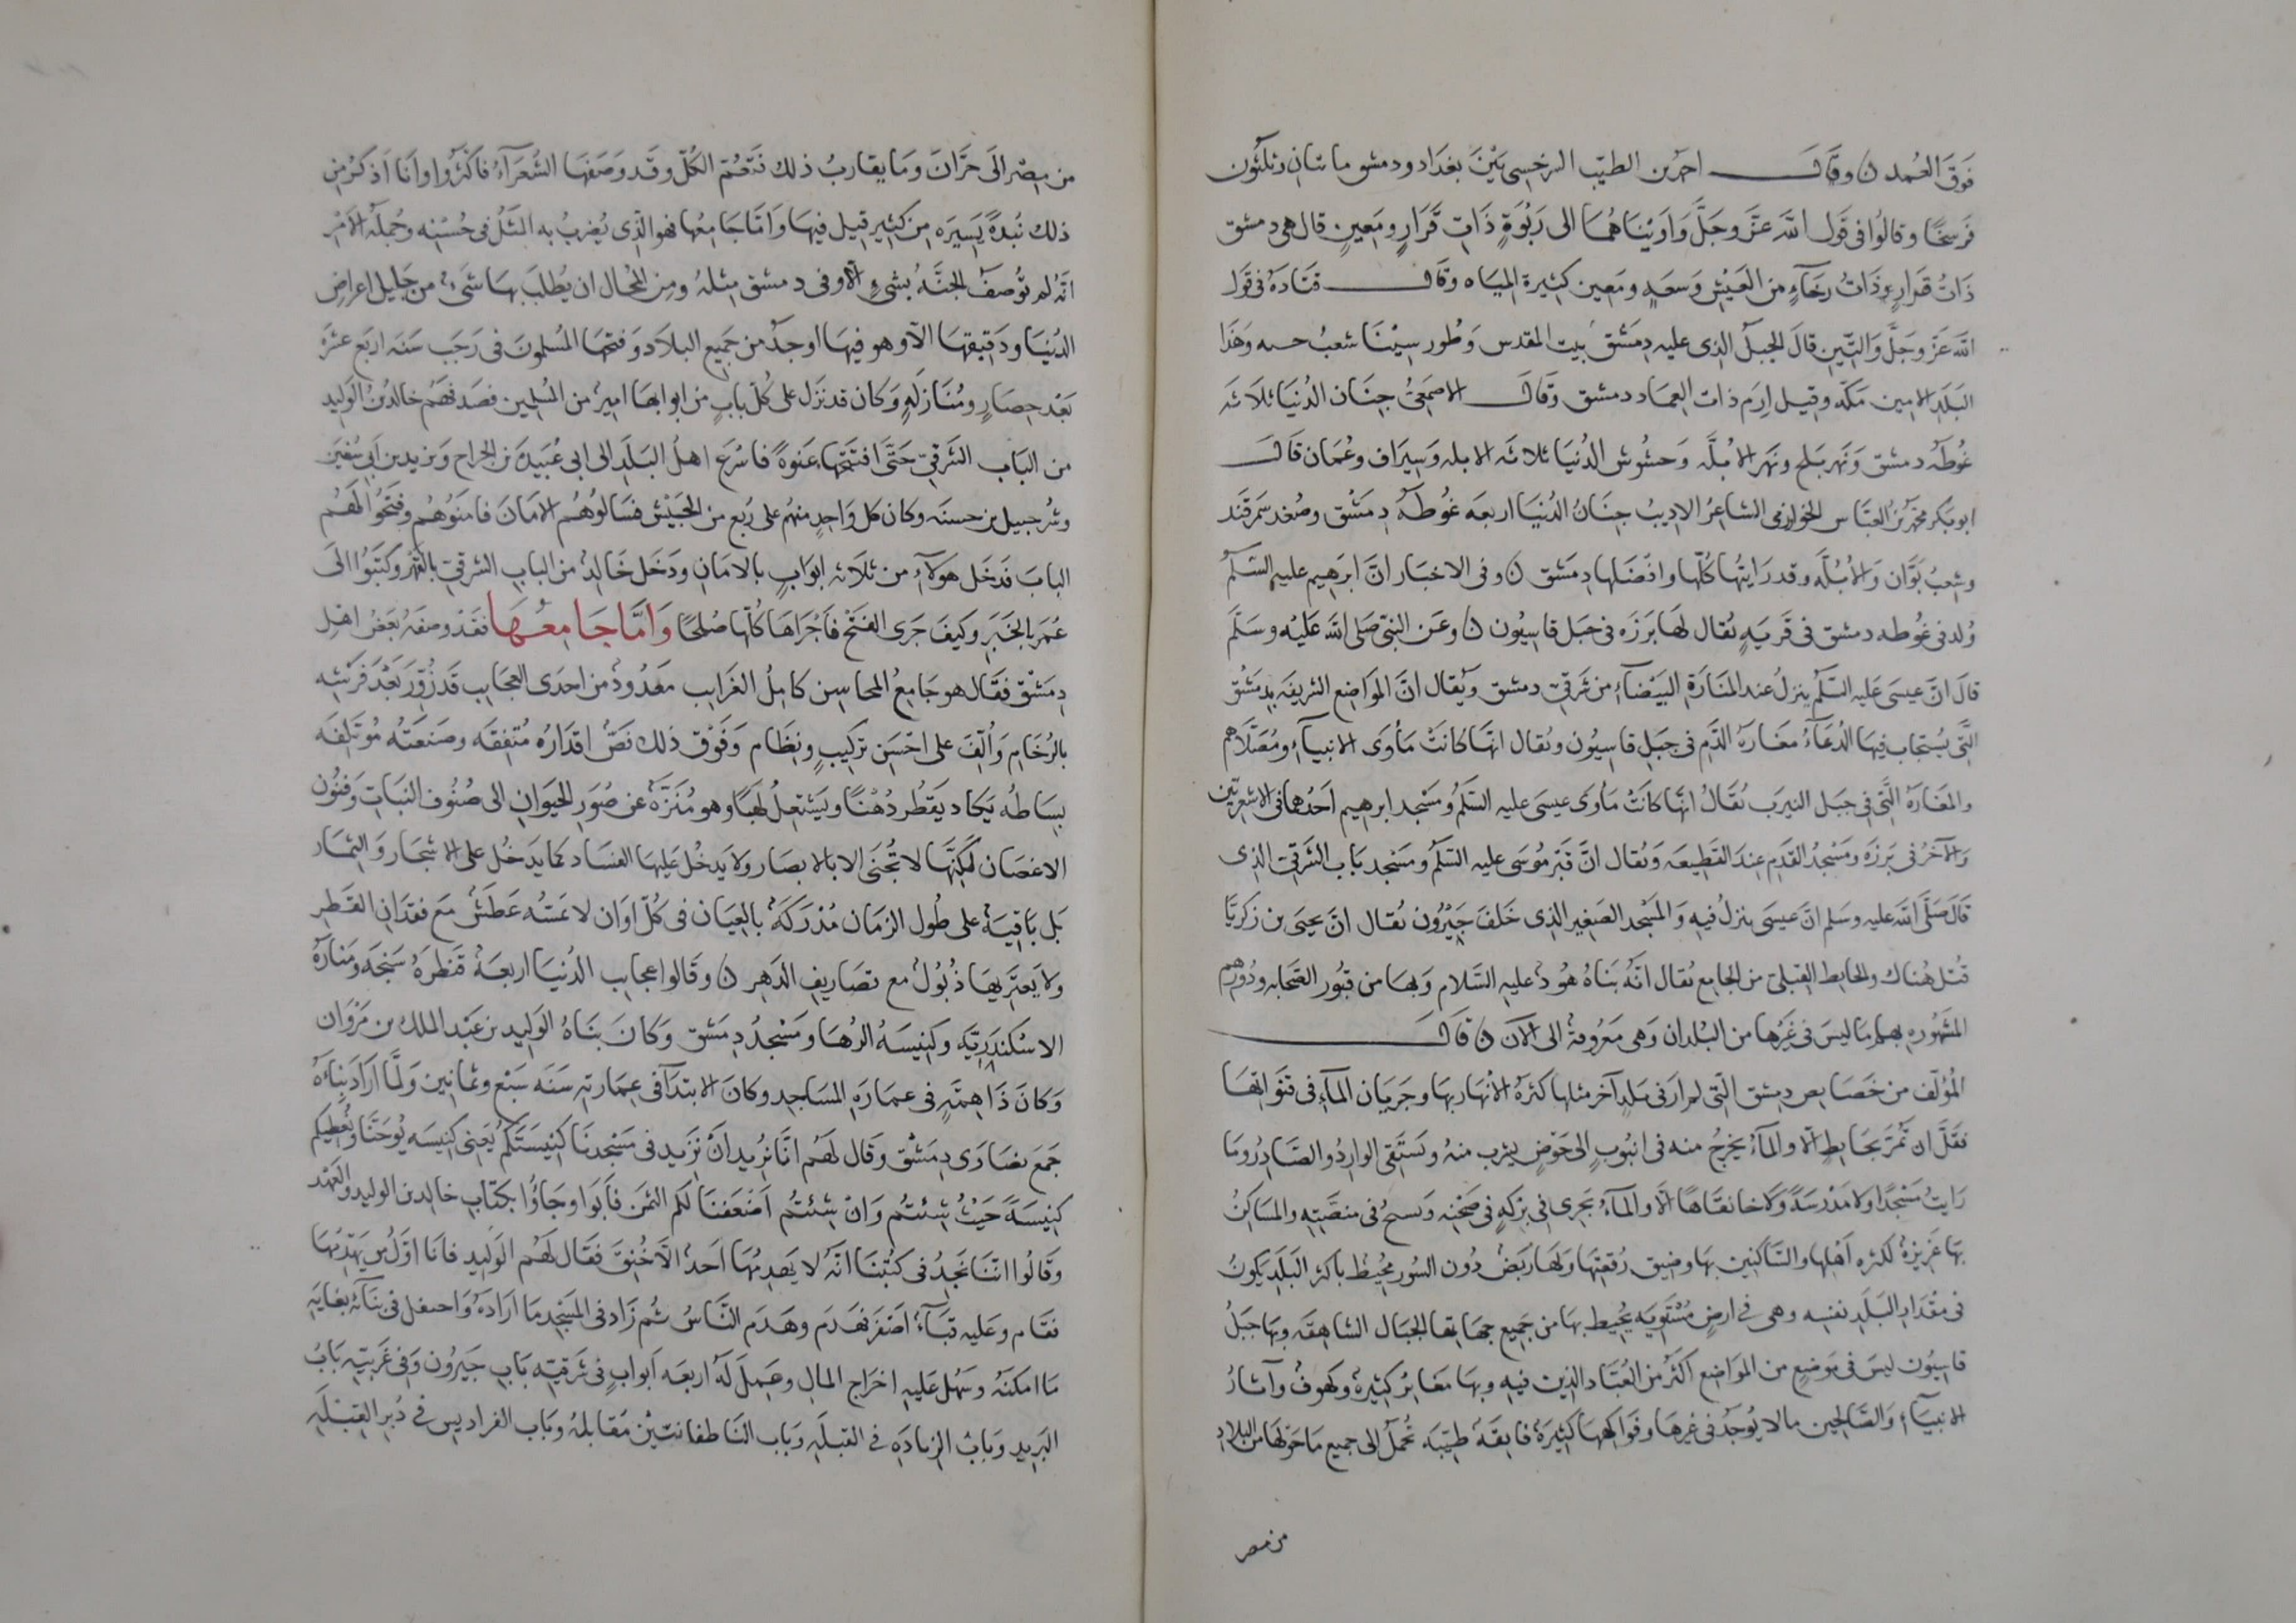 فَوقَ العُمد ن وقَالَ احمد بن الطيّب السرخسي بَيْنَ بغدَاد ودمشق مائتان وثلثُون
فَرسَخًا وقالُوا في قَول الله عَزَّ وجَلَّ وَاوَيْنَاهُمَا الى رَبْوَةٍ ذَاتِ قَرَارٍ ومَعينٍ قال هي دمشق
ذَاتُ قَرارٍ وذَاتُ رخَاءٍ من العَيْشِ وَسَعَةٍ ومَعين كثيرة الميَاه وقَالَ قتَادَهُ في قَول
الله عَزَّ وجَلَّ وَالتّينِ قالَ الجبلُ الذي عليه دِمَشقُ بَيت المقدس وَطُور سِيْنَا شعبُ حسه وَهَذَا
البَلَدِ الامين مَكّه وقيل ارَم ذات العِمَاد دمشق وقَالَ الاصمَعيُّ جنَان الدُنيَا ثلاثَه
غُوطَه دمشق وَنَهر بَلخ ونَهر الابُلَّه وَحشُوش الدُنيَا ثلاثَه الابله وَسِيرَاف وعُمَان قَالَ
ابو بَكر محمّد بنُ العَبَّاس الخوارزمى الشاعرُ الاديبُ جنَانُ الدُنيَا اربعَه غُوطَهُ دِمَشْق وصُغد سَمَرقَند
وشِعبُ بَوَّان وَالأبُلَّه وقد رَايتُها كُلّها وافضَلها دِمَشق ن وفي الاخبَار انَّ ابرَهِيم عليه السَلَمُ
وُلد في غُوطه دمشق في قَريَهٍ يُقال لهَا بَرَزَه في جَبَل قاسِيُون ن وعَن النبيّ صَلى الله عَليْه وسَلَّمَ
قالَ انَّ عيسَى عَليه السَلَمُ ينزلُ عند المنَارَة البَيْضَاءِ من شرقيّ دمشق ويُقال انَّ المَوَاضع الشريفَه بدِمَشْق
الَّتي يُستجَاب فيهَا الدُعَآءُ مغَارَهُ الدَّم في جَبَل قاسِيُون ويُقال انّهَا كانَتْ مَأوَى الانبيَآءِ ومُصَلّاهم
والمغَارَهُ الَّتي في جبَل النيرَب يُقَالُ انّهَا كانَتْ مَأوَى عيسَى عليه السَلَمُ ومَسْجد ابرهيم احَدُهما في الاشعريّين
وَالآخرُ في بَرزَه ومَسْجدُ القَدَم عِندَ القَطِيعَه وَيُقال انَّ قَبْر مُوسَى عليه السَلَمُ ومَسْجد بَاب الشَرقيّ الذِي
قَالَ صَلَّى الله عليه وسَلم انَّ عيسَى ينزلُ فيهِ وَالمَسْجد الصَغير الذِي خَلفَ جَيْرُون يُقال انَّ يحيَى بن زَكَريَّا
قُتل هُنَاك والحَايط القِبليّ من الجَامع يُقال انّهُ بَنَاهُ هُودُ عليهِ السَّلام وَبهَا من قبُور الصَحَابه ودُورهم
المشهُوره بهَا مَا ليسَ في غَيرهَا من البُلدان وَهي مَعرُوفهُ الى الآنَ ن قَالَ
الْمُؤلّف من خَصَايص دِمشق الّتي لم ارَ في بَلدٍ آخر مثلها كثرَهُ الأنهَار بهَا وجَريَان المآءِ في قنَوَاتها
فقَلَّ ان تَمُرَّ بحَايطٍ الّا والمآءُ يخرجُ منه في انبُوبٍ الى حَوْضٍ يشرب منهُ ويَستَقي الوارِدُ والصَّادرُ ومَا
رَايتُ مَسْجدًا ولا مَدْرسَةً وَلا خانقَاهًا الّا والمآءُ يجري في بِركةٍ في صَحْنه ويَسحُ في ميضَتِهِ والمسَاكنُ
بهَا عَزيزهُ لكثره اهْلِها والسَّاكنين بهَا وضِيق رُقعَتها ولهَا رَبَضُ دُون السُور مُحيطُ بأكثر البَلَدِ يكُونُ
في مقْدَارِ البَلَدِ نفسِه وهي في ارضٍ مُسْتَوِيَه يحُيط بهَا من جَميع جهَاتها الجبَال الشاهقَه وبهَا جَبَلُ
قاسِيُون ليسَ في مَوضعٍ من المَوَاضع اكثرُ من العُبّاد الذين فيه وبهَا مغَايرُ كثيرهُ وكهوفُ وآثارُ
الانبيَآءِ وَالصَّالحِين مالا يُوجَدُ في غيرهَا وفَواكههَا كثيرَهُ فايقَهُ طيّبَه تُحمَلُ الى جميع مَا حَوْلهَا من البلاد
من مصر
من مِصْر الى حَرَّانَ وَمَا يقاربُ ذلك فتَعُمّ الكُلّ وقد وَصَفَهَا الشُعَرَآءُ فاكثرُوا وانَا اَذكرُ من
ذلك نُبذَةً يَسِيرَه مِن كثيرٍ قيل فيهَا وَامَّا جَامعُها فهو الّذِي يُضربُ به المثَلُ في حُسْنِه وجُملَهُ الامْرِ
انّهُ لم تُوصَف الجنَّهُ بشيءٍ الّا وفي دِمشق مِثلهُ ومِن المحَال ان يُطلَبَ بهَا شَيءٌ من جَليل اعراضِ
الدُنيَا ودَقيقهَا الّا وهو فيهَا اوجَدُ من جَميع البلاد وَفتحَها المُسلمونَ في رَجَب سَنَه اربَع عشَره
بَعْد حِصَارٍ ومُنَازَلَهٍ وَكان قد نزَل على كُلّ بابٍ من ابوابهَا اميرُ من المُسْلمين فصَدَفهُم خالدُ بنُ الوَليد
من البَاب الشَرقيّ حَتَّى افتتحها عَنوَةً فاسْرَع اهلُ البَلَدِ الى ابي عُبَيدَه بن الجراح وَيزيد بن ابي سُفيَن
وشُرحبيل بن حسنَه وكان كل وَاحدٍ منهُم على رُبع من الجَيْش فسَالُوهُمُ الامَانَ فامَنُوهُم وفتحُوا لهَمُ
البابَ فَدخَل هؤلآءِ من ثلاثَه ابوَابٍ بالامَانِ ودَخَل خَالدُ من البابِ الشرقيّ بالقَهْر وكتَبُوا الى
عُمَر بالخَبَرِ وكيفَ جَرَى الفَتحُ فاَجْرَاهَا كُلّها صُلحًا وَامَّا جَامِعُهَا فقَد وصفَهُ بَعضُ اهْلِ
دِمَشْق فقَال هو جَامِعُ المحاسِن كامِلُ الغَرايب معَدُودُ من احدَى العجَايب قد زُوّرَ بَعْدَ فَرْشِه
بالرُخَام وَاُلّفَ على احْسَن تركيبٍ ونِظَام وَفَوْق ذلك نَصُّ اقدَارُه مُتّفِقَه وصَنعَتُه مُؤتَلِفَه
بسَاطُه يَكاد يَقطُر دُهنًا ويَشتَعِلُ لهَبًا وهو مُنَزَّهُ عن صُوَر الحَيَوَانِ الى صُنُوف النبَاتِ وَفنُون
الاغصَان لكِنَّهَا لا تُجنَى الا بالابصَار ولا يَدخُل عَليهَا الفسَاد كما يَدخُل على الاشجَار وَالثِمَار
بَل بَاقِيَهُ على طُول الزمَان مُدْرَكَهُ بالعيَان في كُلّ اوَان لا يمَسُّه عَطَشُ مَع فقدَانِ القَطرِ
ولا يَعتَريهَا ذُبُولُ مع تصَاريفِ الدَهِر ن وقَالوا عجايب الدُنيَا اربعَهُ قنطرَهُ سَنجَه ومَنارَهُ
الاسكندَرِيَّه وكنِيسَهُ الرُهَا ومَسْجدُ دِمَشق وَكانَ بنَاهُ الوَليد بن عَبْد الملك بن مَرْوَان
وَكانَ ذَا هِمَّهٍ في عمَارَهِ المسَاجدِ وكانَ الابتدَآ في عِمَارتهِ سَنَه سَبْع وثمَانين وَلمَّا ارَادَ بِنَاءَهُ
جَمَع نصَارَى دِمَشْق وقَال لهَم انَّا نُريدُ انْ نَزيد في مَسْجدنَا كنيسَتَكُم يَعني كنِيسَه يُوحَنَّا ونُعطيكم
كنِيسَةً حَيْثُ شِئتُم وَانْ شئتُم اضْعَفنَا لكم الثمن فاَبَوا وجَاؤُا بكتَابِ خالد بن الوليد والعَهْد
وقَالُوا انّنَا نَجدُ في كتُبنَا انّهُ لا يَهدِمُهَا احَدُ الّا خُنِقَ فقَال لهُم الوَليد فانَا اوَّلُ من يَهدِمُهَا
فقَام وعَليه قبَاءُ اصْفَر فهَدَم وهَدَم النَّاسُ ثُم زَادَ في المَسْجدِ مَا ارَادَهُ وَاحتفل في بنَائه بغَايَه
مَا امكنَهُ وسَهُل عَليهِ اخرَاج المال وعَمِلَ لَهُ اربعَه اَبوابٍ في شرقيّهِ بَاب جَيرُون وَفي غَربيّهِ بَابُ
البَريد وبَابُ الزيادَه في القبلَه وبَاب النَاطفانيّيْن مُقابلهُ وبَاب الفراديس في دُبر القِبْلَه